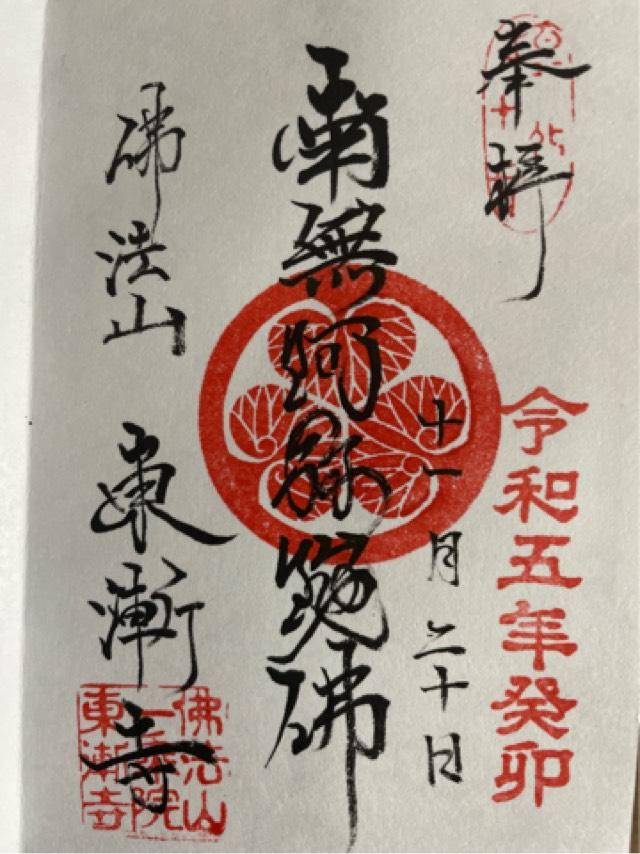 奉拝
令和五年癸卯
十一月二十日
南無阿弥陀佛
佛法山 東漸寺
佛法山
一乗院
東漸寺